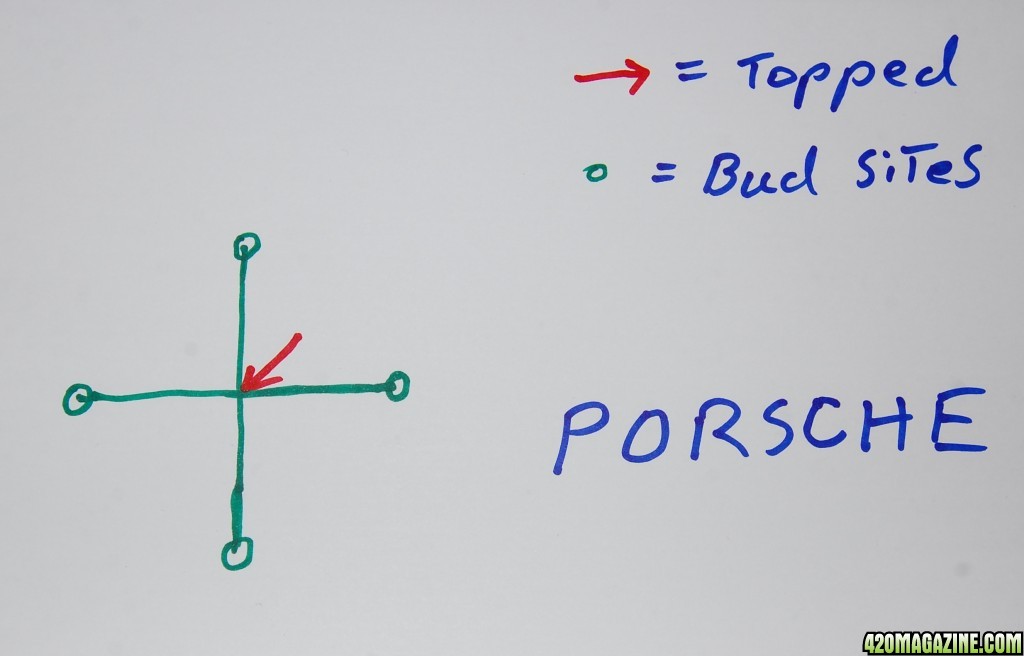 → = Topped
o = Bud SiTeS
PORSCHE
420MAGAZINE.COM